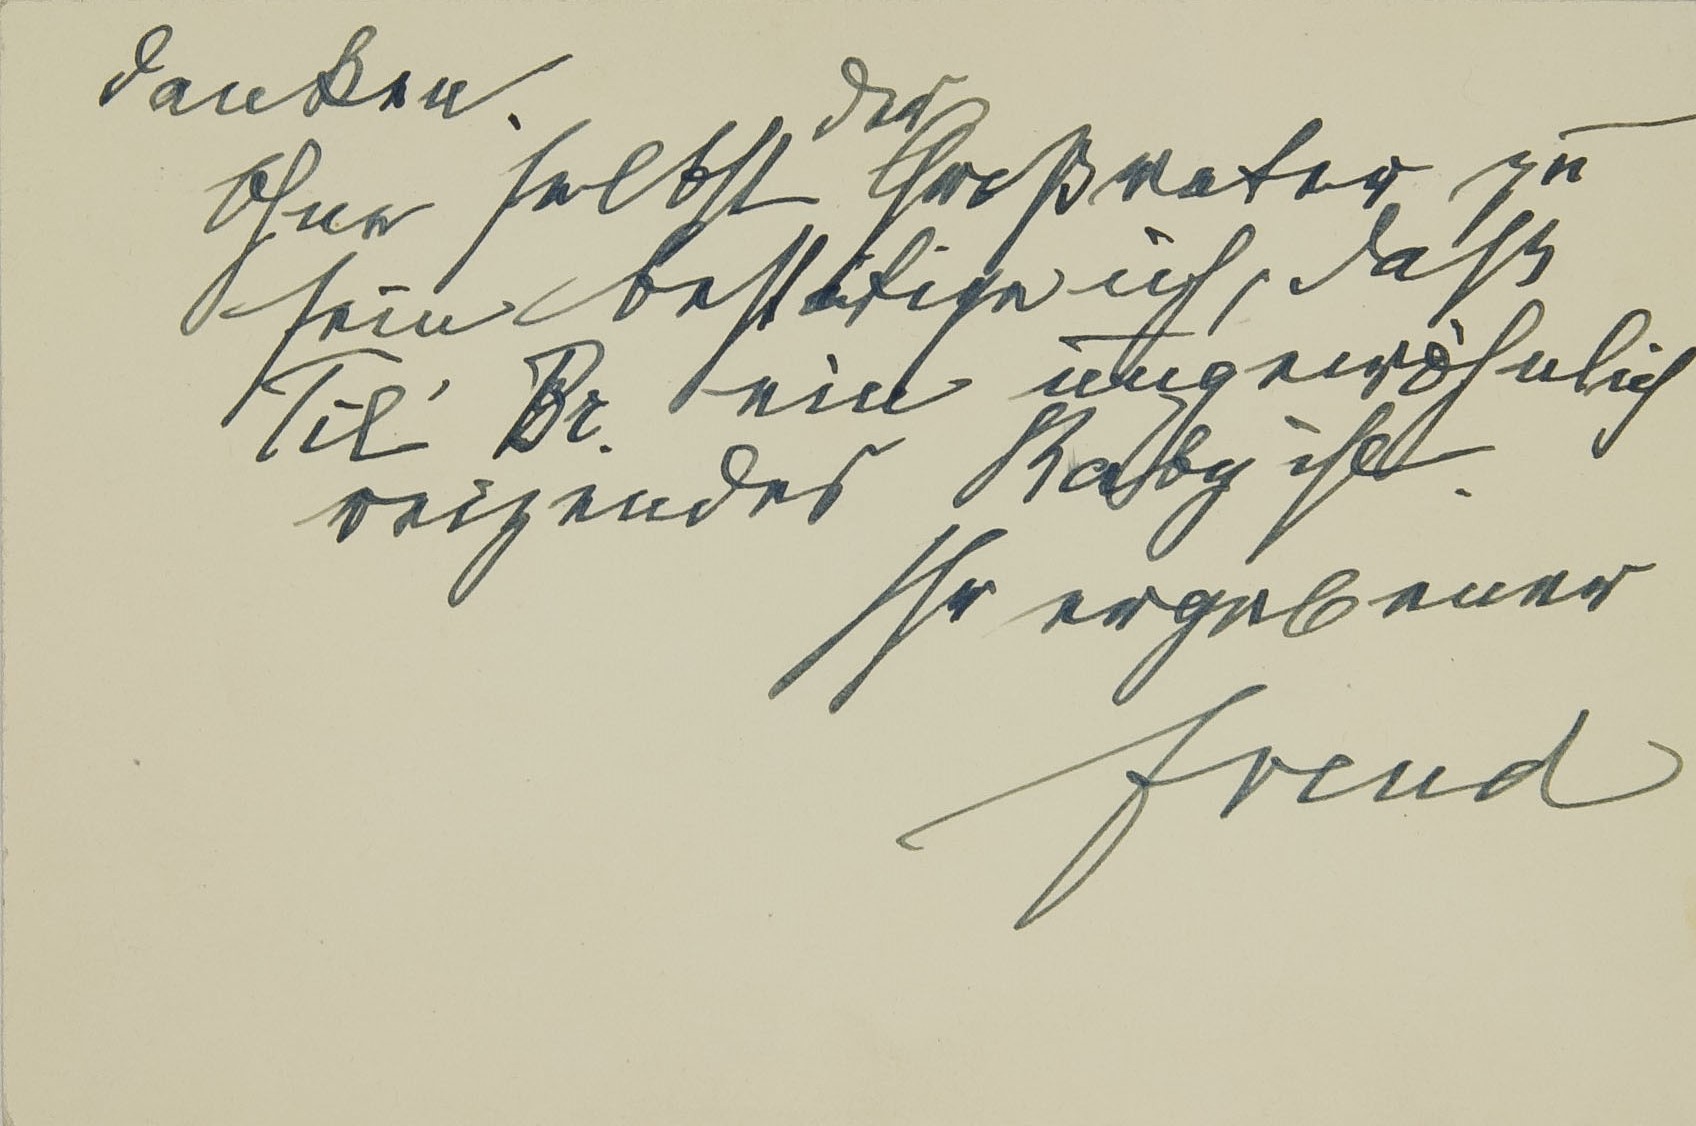 danken.
Ohne selbst der Großvater zu
sein bestätige ich, daß
Til' Br. ein ungewöhnlich
reizendes Baby ist.
Ihr ergebener
Freud